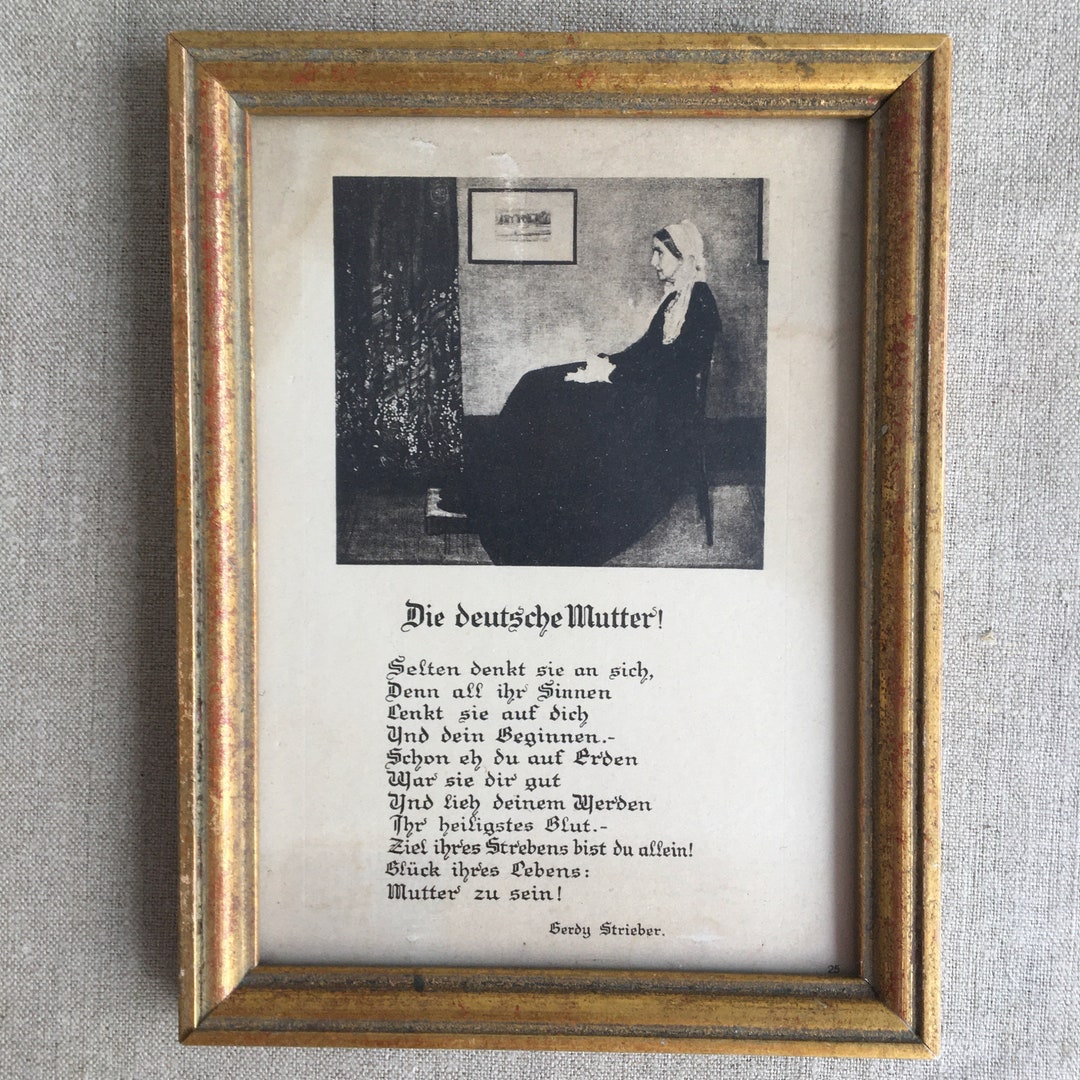 Die deutsche Mutter!
Selten denkt sie an sich,
Denn all ihr Sinnen
Lenkt sie auf dich
Und dein Beginnen.-
Schon eh du auf Erden
War sie dir gut
Und lieh deinem Werden
Ihr heiligstes Blut.-
Ziel ihres Strebens bist du allein!
Glück ihres Lebens:
Mutter zu sein!
Gerdy Strieber.
25